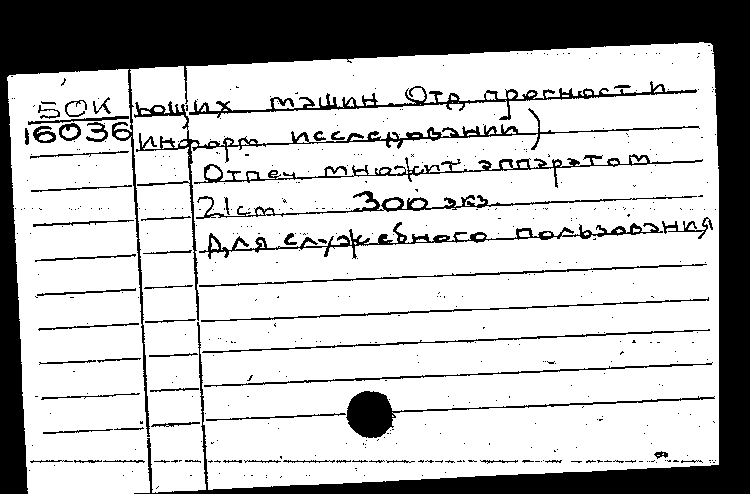 50К
16036
ющих машин. Отд прогност и
информ. исследований).
Отпеч множит. аппаратом
21см. 300 экз.
Для служебного пользования